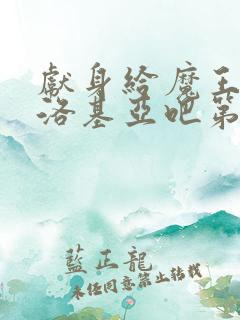 獻身給魔王
洛基亞吧第
藍正龍
未經同意禁止轉載